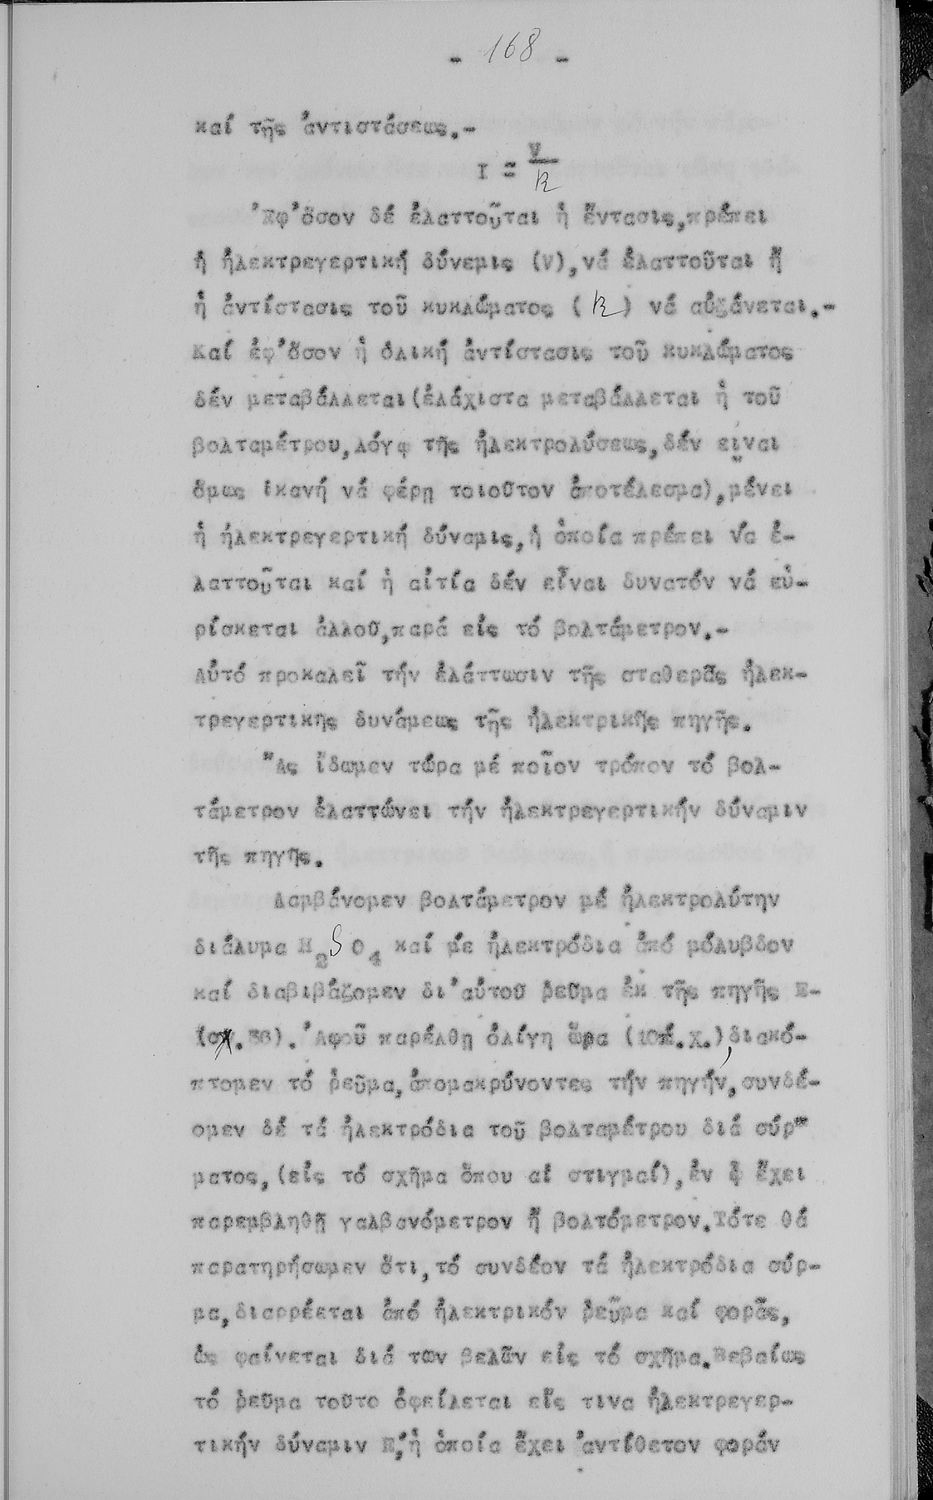 - 168 -
καί τῆς ἀντιστάσεως.-
I = V/R
'Εφ'ὅσον δέ ἐλαττοῦται ἡ ἔντασις,πρέπει
ἡ ἠλεκτρεγερτική δύνεμις (V),νά ἐλαττοῦται ἤ
ἡ ἀντίστασις τοῦ κυκλώματος (R) νά αὐξάνεται.-
Καί ἐφ'ὅσον ἡ ὁλική ἀντίστασις τοῦ κυκλώματος
δέν μεταβάλλεται(ἐλάχιστα μεταβάλλεται ἡ τοῦ
βολταμέτρου,λόγῳ τῆς ἠλεκτρολύσεως,δέν εἶναι
ὅμως ἱκανή νά φέρῃ τοιοῦτον ἀποτέλεσμα),μένει
ἡ ἠλεκτρεγερτική δύναμις,ἡ ὁποία πρέπει νά ἐ-
λαττοῦται καί ἡ αἰτία δέν εἶναι δυνατόν νά εὑ-
ρίσκεται ἀλλοῦ,παρά εἰς τό βολτάμετρον.-
Αὐτό προκαλεῖ τήν ἐλάττωσιν τῆς σταθερᾶς ἠλεκ-
τρεγερτικῆς δυνάμεως τῆς ἠλεκτρικῆς πηγῆς.
Ἄς ἴδωμεν τώρα μέ ποῖον τρόπον τό βολ-
τάμετρον ἐλαττώνει τήν ἠλεκτρεγερτικήν δύναμιν
τῆς πηγῆς.
Λαμβάνομεν βολτάμετρον μέ ἠλεκτρολύτην
διάλυμα H2SO4 καί μέ ἠλεκτρόδια ἀπό μόλυβδον
καί διαβιβάζομεν δι'αὐτοῦ ῥεῦμα ἐκ τῆς πηγῆς Ε-
(σχ.36). 'Αφοῦ παρέλθῃ ὀλίγη ὥρα (10π.χ.),διακό-
πτομεν τό ῥεῦμα,ἀπομακρύνοντες τήν πηγήν,συνδέ-
ομεν δέ τά ἠλεκτρόδια τοῦ βολταμέτρου διά σύρ"
ματος,(εἰς τό σχῆμα ὅπου αἱ στιγμαί),ἐν ᾧ ἔχει
παρεμβληθῆ γαλβανόμετρον ἤ βολτόμετρον.Τότε θά
παρατηρήσωμεν ὅτι,τό συνδέον τά ἠλεκτρόδια σύρ-
μα,διαρρέεται ἀπό ἠλεκτρικόν ῥεῦμα καί φορᾶς,
ὡς φαίνεται διά των βελῶν εἰς τό σχῆμα.Βεβαίως
τό ῥεῦμα τοῦτο ὀφείλεται εἴς τινα ἠλεκτρεγερ-
τικήν δύναμιν Ε',ἡ ὁποία ἔχει ἀντίθετον φοράν